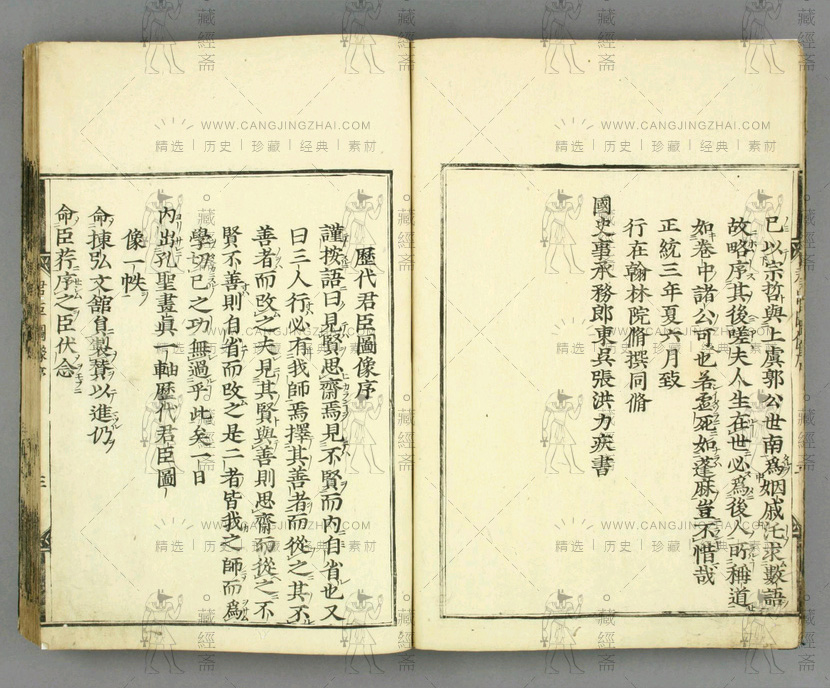 已以宗哲與上虞郭公世南為姻戚托求數語
故略序其後嗟夫人生在世必為後人所稱道
如卷中諸公可也若虛死如蓬麻豈不惜哉
正統三年夏六月致
行在翰林院脩撰同脩
國史事承務郎東吳張洪力疾書
歷代君臣圖像序
謹按語曰見賢思齋焉見不賢而內自省也又
曰三人行必有我師焉擇其善者而從之其不
善者而改之夫見其賢與善則思齋而從之不
賢不善則自省而改之是二者皆我之師而為
學切己之功無過乎此矣一日
內出孔聖畫真一軸歷代君臣圖
像一帙
命揀弘文館員製贊以進仍
命臣荇序之臣伏念
君臣圖像序
三
WWW.CANGJINGZHAI.COM
精选 | 历史 | 珍藏 | 经典 | 素材
藏經斋